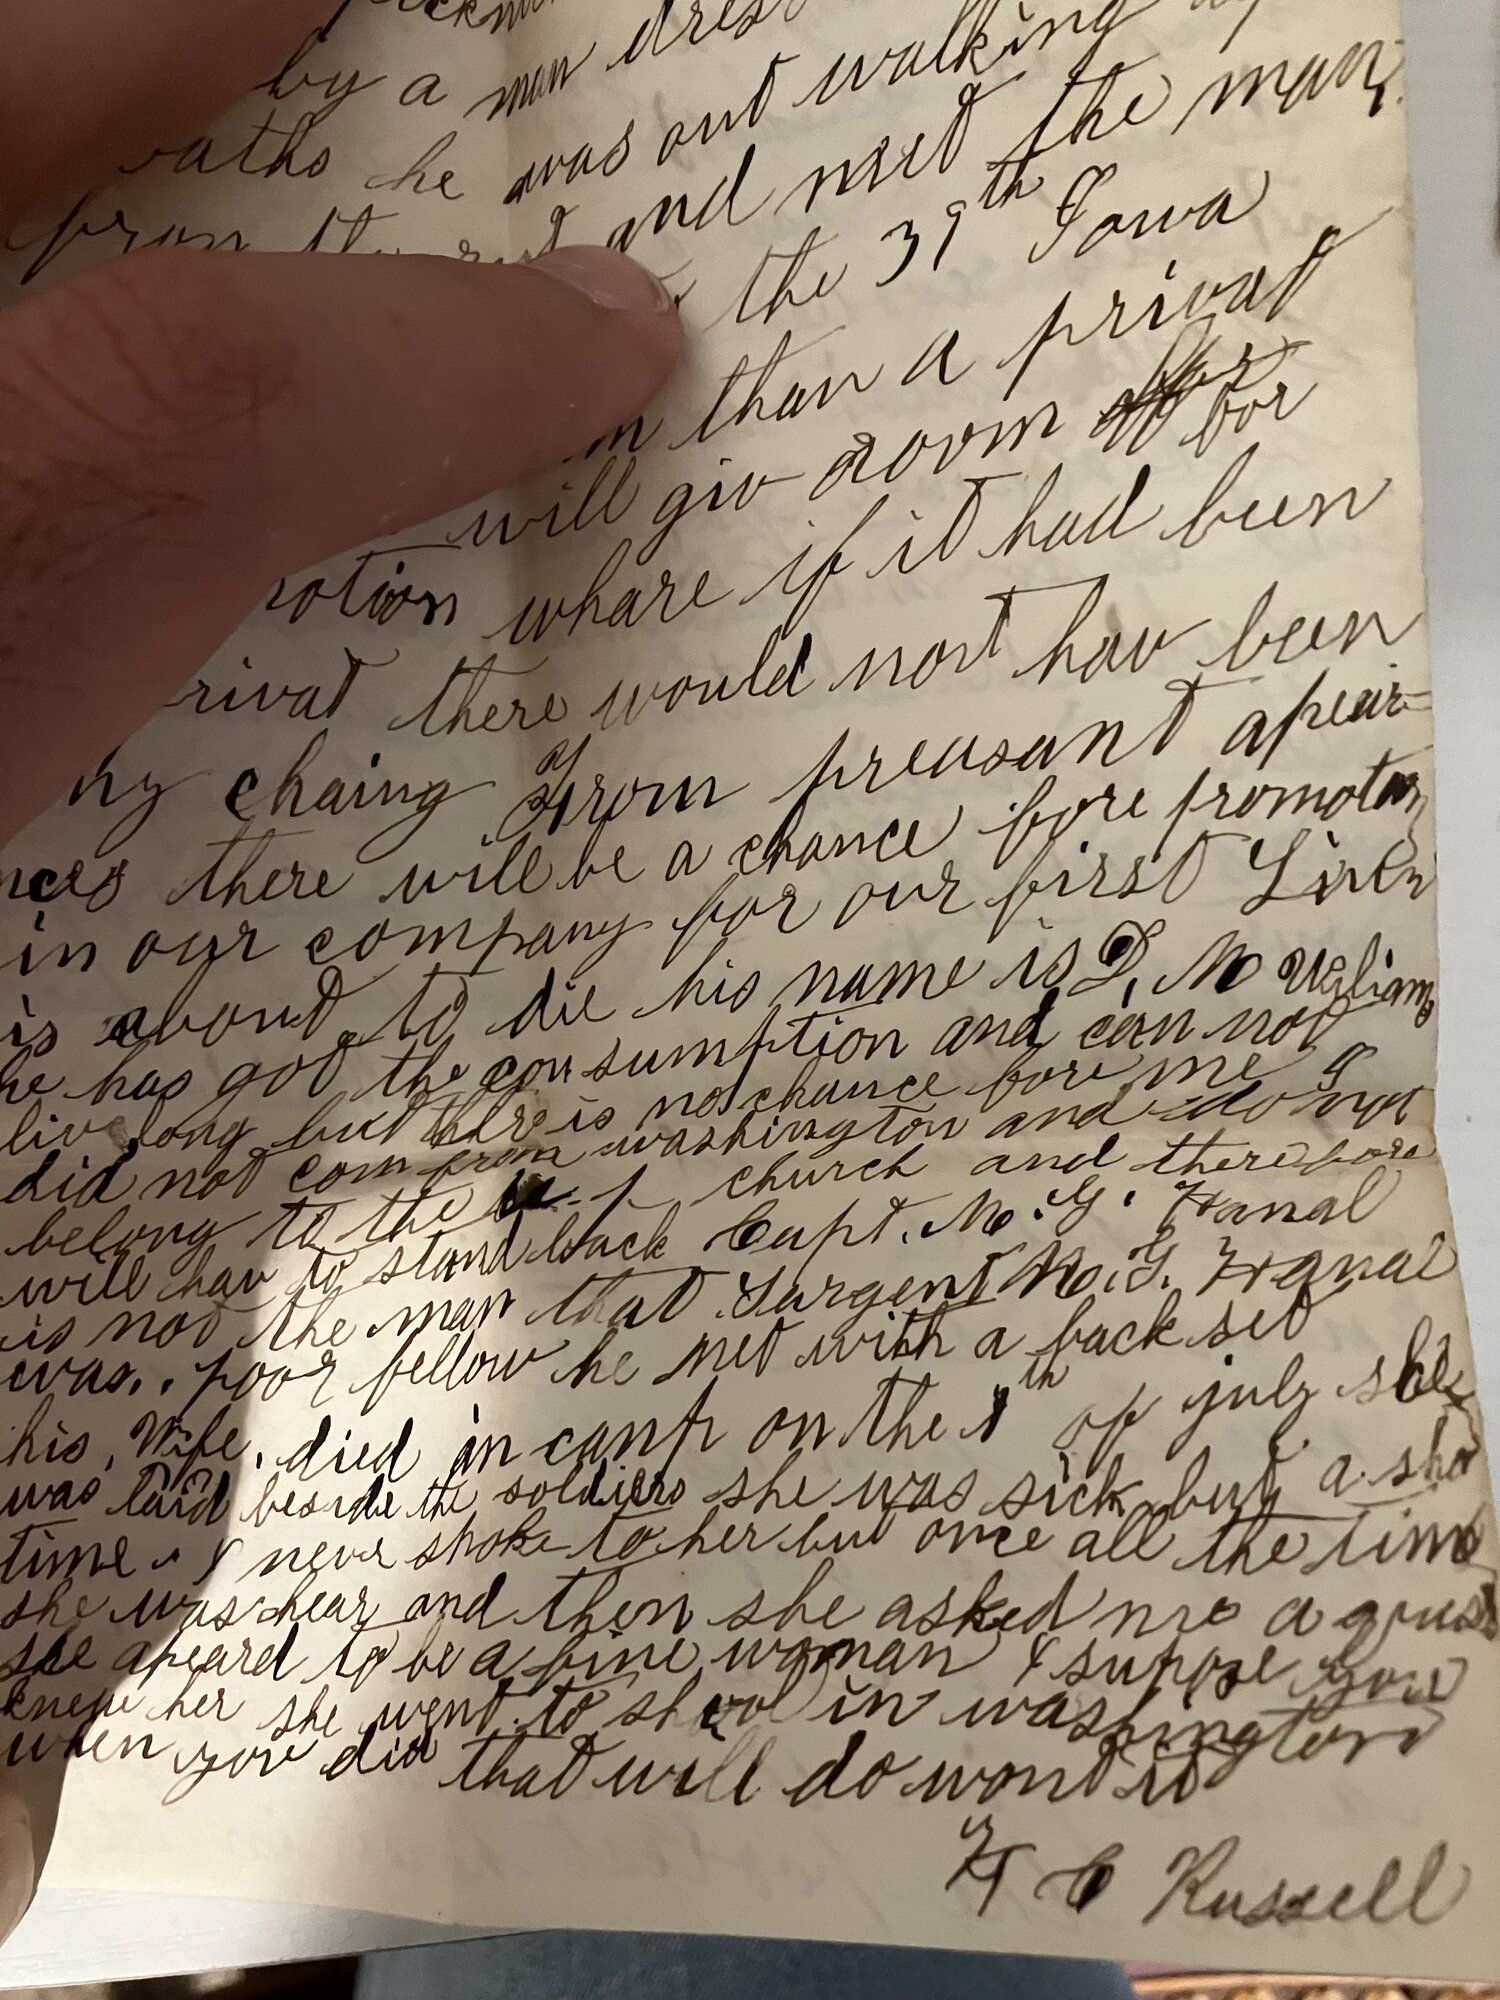 by a man
he was out walking
and met the man
the 39th Iowa
than a privat
will giv room for
whare if it had been
there would nort hav been
chaing From preasant apear
there will be a chance fore promoton
in our company for our first
is about to die his name is D, M
he has got the consumption and can not
liv long but there is no chance fore me I
did not com from washington and do not
belong to the u. p church and therefore
will hav to stand back Capt. M. G. Hanal
is not the man that Surgent M. G. Hanal
was.. poor fellow he met with a back set
his, Wife, died in camp on the of july she
was laid beside the soldiers she was sick but a
time. I never spoke to her but once all the time
she was hear and then she asked me a
she apeard to be a fine woman I supose you
knew her she went to shcool in washington
when you did that will do wont it
C Russell